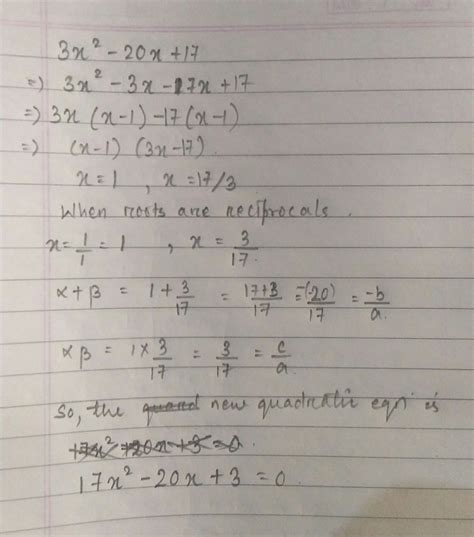 3x² - 20x + 17
=) 3x² - 3x - 17x + 17
=) 3x (x-1) -17 (x-1)
=) (x-1) (3x-17)
x=1 , x=17/3
When roots are reciprocals.
x = 1/1 = 1 , x = 3/17
α + β = 1 + 3/17 = 17+3/17 = -(-20)/17 = -b/a
αβ = 1 × 3/17 = 3/17 = c/a
So, the new quadratic eqn is
17x² - 20x + 3 = 0.
17x² - 20x + 3 = 0.